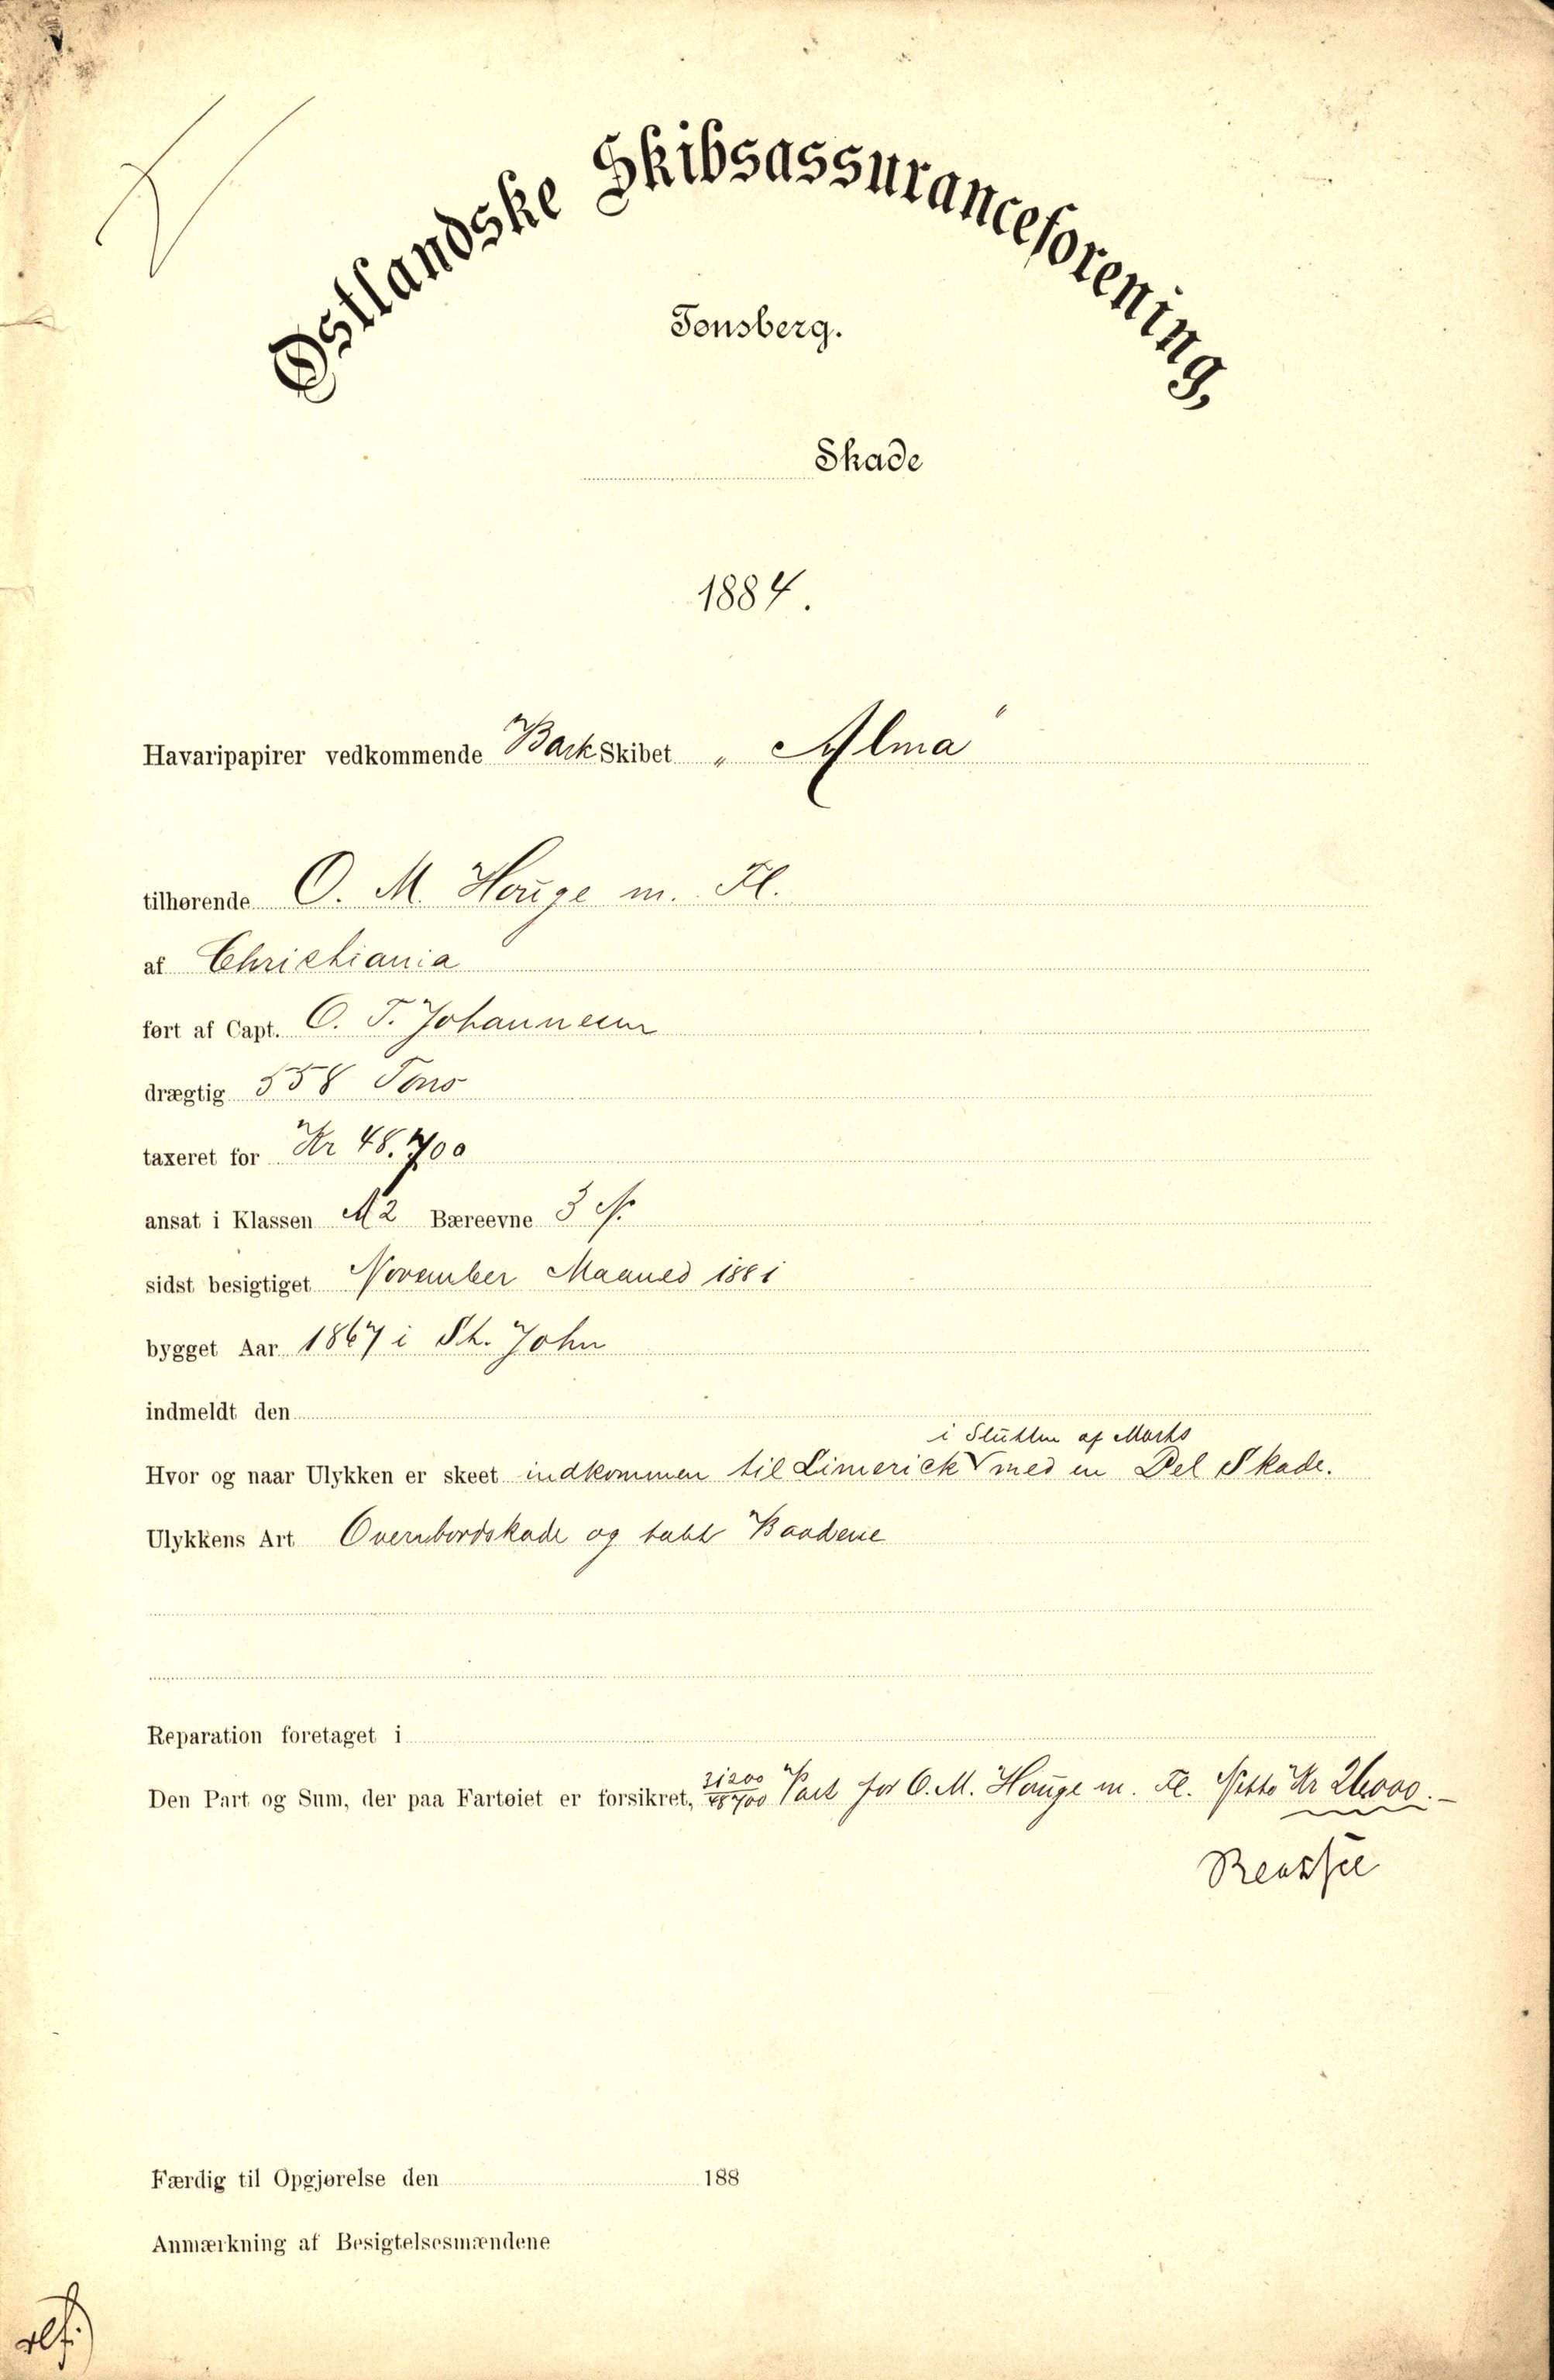 Østlandske Skibsassuranceforening,
Tønsberg.
Skade
1884.
Havaripapirer vedkommende Bark Skibet „Alma"
tilhørende O. M. Houge m. Fl.
af Christiania
ført af Capt. O. T. Johannesen
drægtig 558 Tons
taxeret for Kr 48.700
ansat i Klassen A2 Bæreevne 3
sidst besigtiget November Maaned 1881
bygget Aar 1867 i St. John
indmeldt den
i Slutten af Marts
Hvor og naar Ulykken er skeet indkommen til Limerick med en Del Skade.
Ulykkens Art Overbordskade og tabt Baadene
Reparation foretaget i
Den Part og Sum, der paa Fartøiet er forsikret, 31200/48700 Part for O. M. Houge m. Fl. Netto Kr 26000.-
Færdig til Opgjørelse den 188
Anmærkning af Besigtelsesmændene